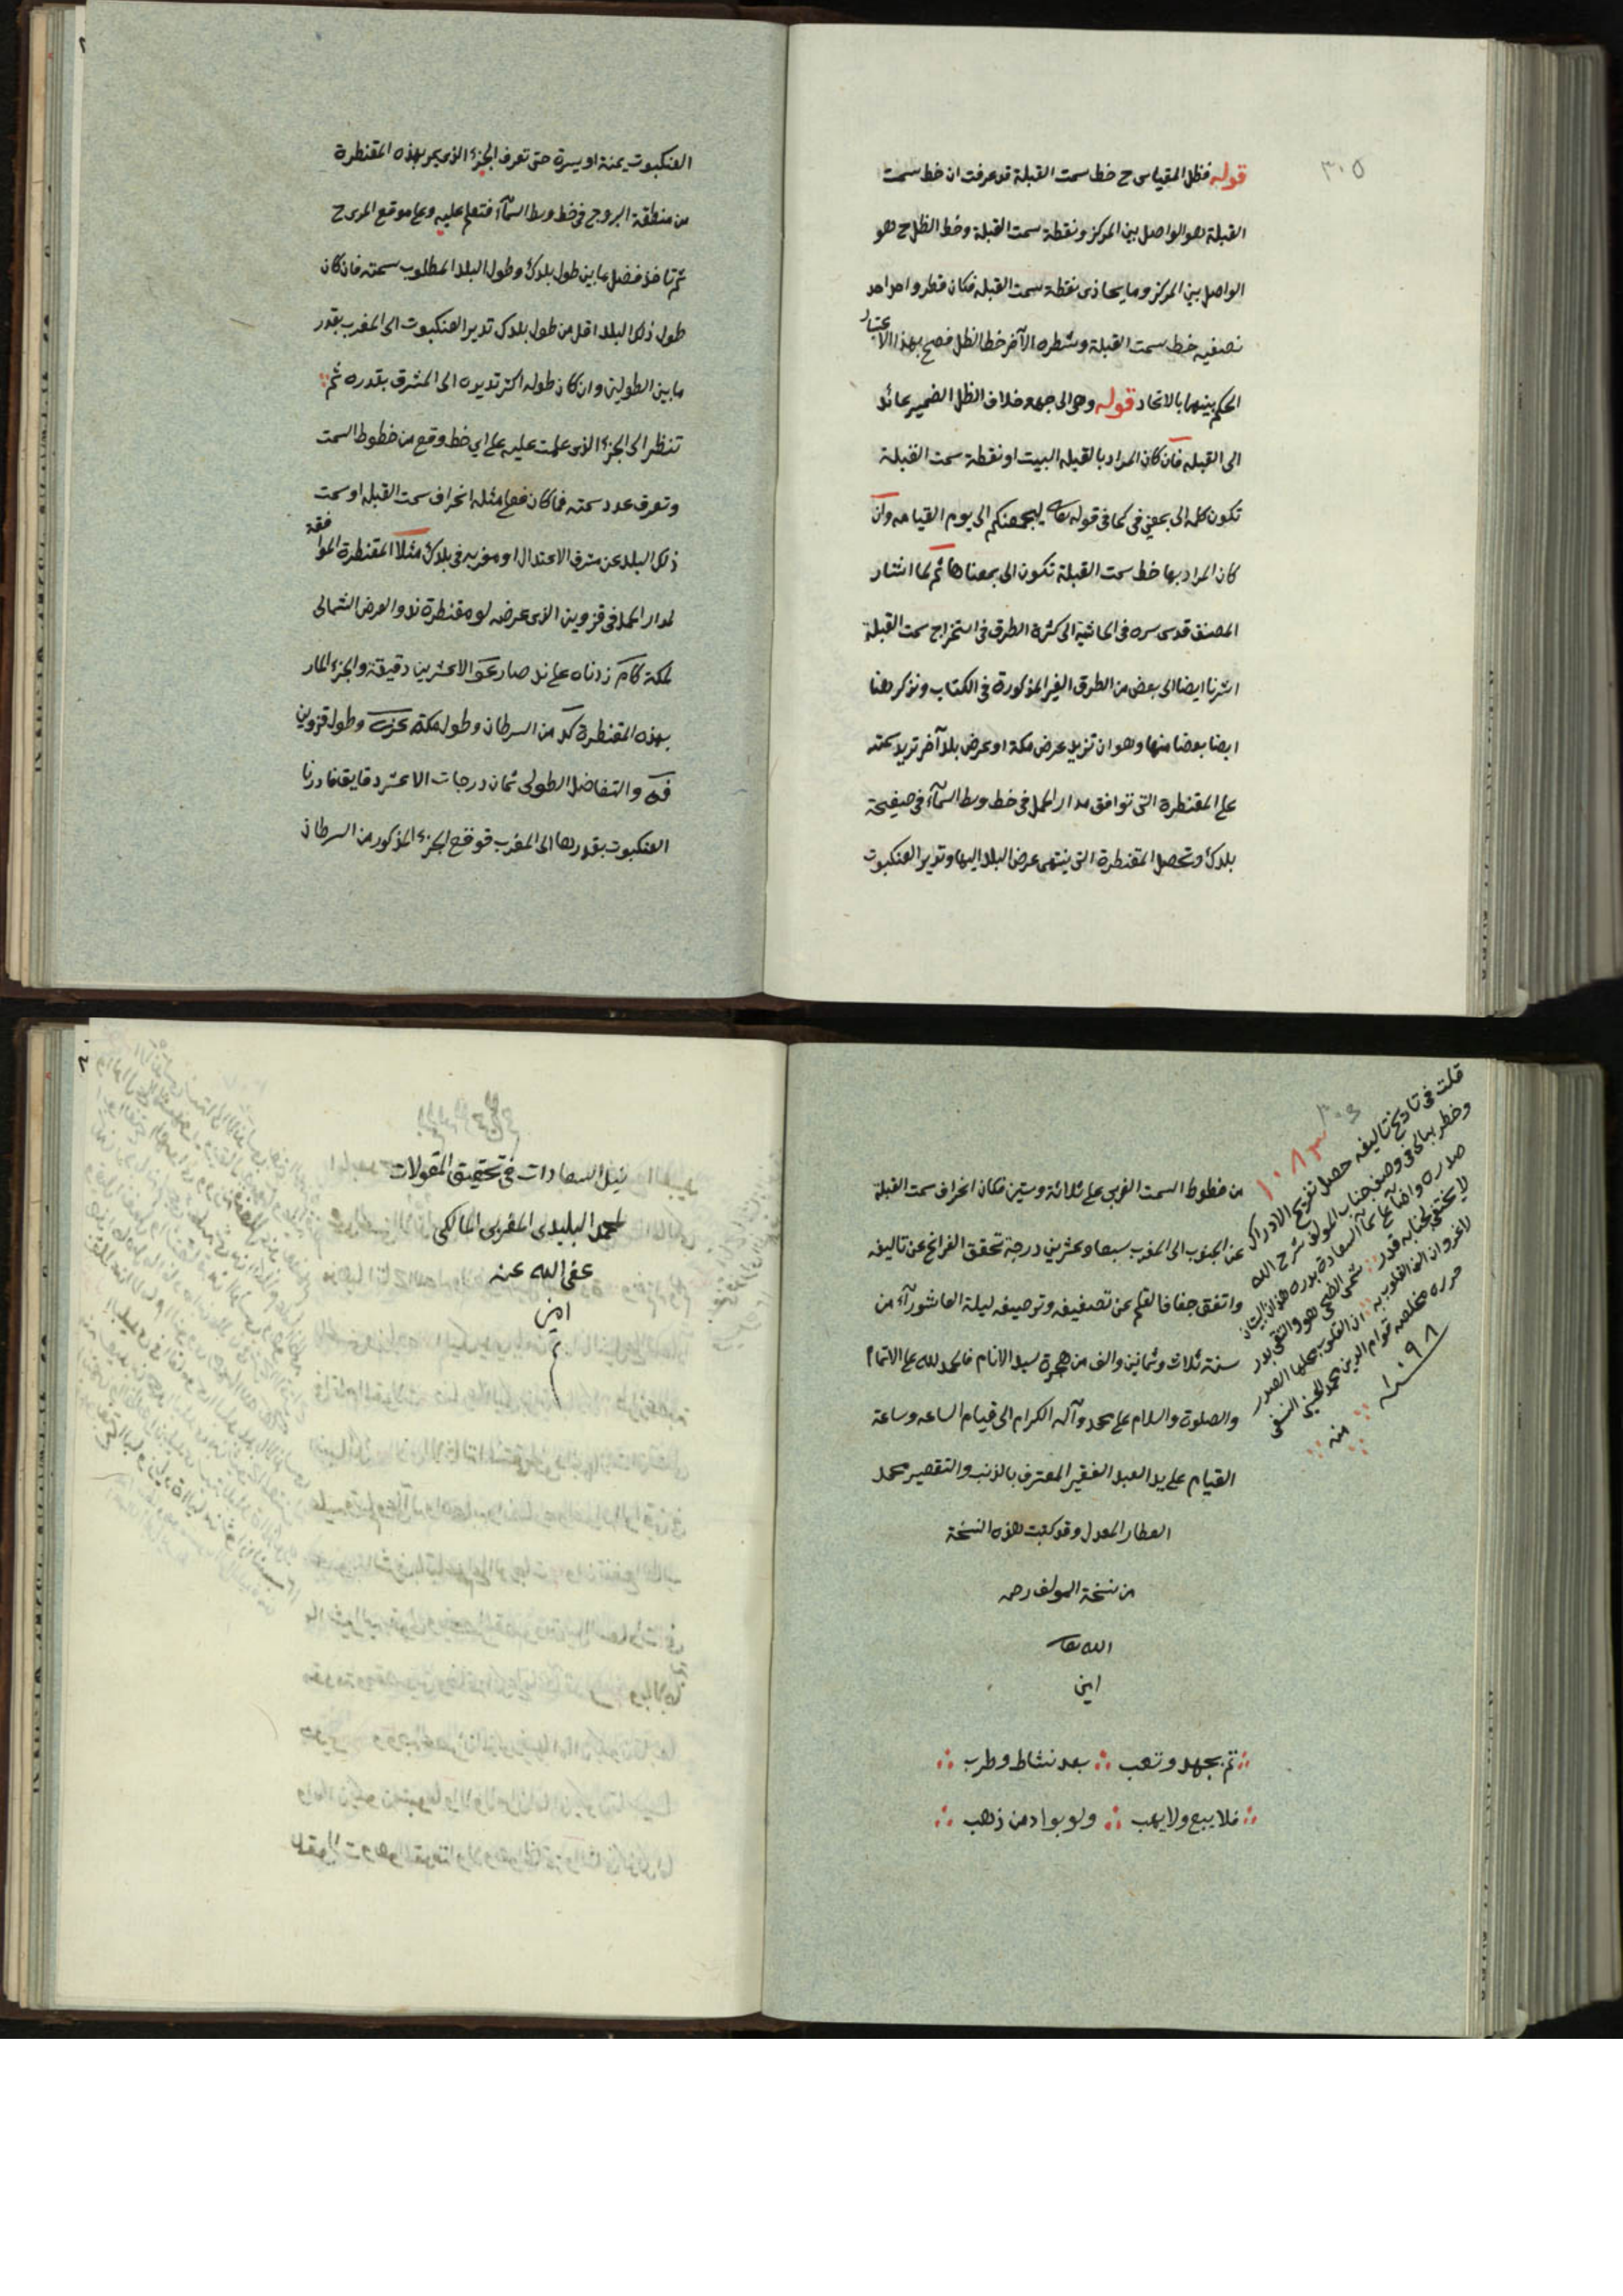 ٣٠٥
قوله فظل المقياس ح خط سمت القبلة قد عرفت ان خط سمت
القبلة هو الواصل بين المركز ونقطة سمت القبلة وخط الظل ح هو
الواصل بين المركز وما يحاذى نقطة سمت القبلة فكان قطر واحد احد
نصفيه خط سمت القبلة وشطره الآخر خط الظل فصح بهذا الاعتبار
الحكم بينهما بالاتحاد قوله وهى الى جهة خلاف الظل الضمير عائد
الى القبلة فان كان المراد بالقبلة البيت او نقطة سمت القبلة
تكون كلمة الى بمعنى فى كما فى قوله تعالى ليجمعنكم الى يوم القيامة وان
كان المراد بها خط سمت القبلة تكون الى بمعناها ثم لما اشار
المصنف قدس سره فى الحاشية الى كثرة الطرق فى استخراج سمت القبلة
اشرنا ايضا الى بعض من الطرق الغير المذكورة فى الكتاب ونذكر هنا
ايضا بعضا منها وهو ان تزيد عرض مكة او عرض بلد آخر تريد سمته
على المقنطرة التى توافق مدار الحمل فى خط وسط السمآء فى صفيحة
بلدك وتحصل المقنطرة التى ينتهى عرض البلد اليها وتدير العنكبوت
العنكبوت يمنة او يسرة حتى تعرف الجزء الذى يمر بهذه المقنطرة
من منطقة البروج فى خط وسط السمآء فتعلم عليه وعلى موقع المرى ح
ثم تاخذ فضل ما بين طول بلدك وطول البلد المطلوب سمته فان كان
طول ذلك البلد اقل من طول بلدك تدير العنكبوت الى المغرب بقدر
ما بين الطولين وان كان طوله اكثر تديره الى المشرق بقدره ثم
تنظر الى الجزء الذى علمت عليه على اي خط وقع من خطوط السمت
وتعرف عدد سمته فما كان فعلى مثله انحراف سمت القبلة او سمت
ذلك البلد عن مشرق الاعتدال او مغربه فى بلدك مثلا المقنطرة الموافقة
لمدار الحمل فى قزوين الذى عرضه لو مقنطرة ند والعرض الشمالى
لمكة كام زدناه على ند صار عو الا عشرين دقيقة والجزء المار
بهذه المقنطرة كد من السرطان وطول مكة عزى وطول قزوين
فه والتفاضل الطولى ثمان درجات الا عشر دقايق فادرنا
العنكبوت بقدرها الى المغرب فوقع الجزء المذكور من السرطان
من خطوط السمت الغربى على ثلاثة وستين فكان انحراف سمت القبلة
عن الجنوب الى المغرب سبعا وعشرين درجة تحقق الفراغ عن تاليفه
واتفق جفاف القلم عن تصنيفه وتوصيفه ليلة العاشورآء من
سنة ثلاث وثمانين والف من هجرة سيد الانام فالحمد لله على الاتمام
والصلوة والسلام على محمد وآله الكرام الى قيام الساعه وساعة
القيام على يد العبد الفقير المعترف بالذنب والتقصير محمد
العطار المعدل وقد كتبت هذه النسخة
من نسخة المولف رحمه
الله تعالى
امين
تم بجهد وتعب بعد نشاط وطرب
فلا يبع ولا يهب ولو بواد من ذهب
قلت فى تاريخ تاليفه حصل تفريح الادراك
١٠٨٣
وخطر ببالى فى وصف جناب المولف شرح الله
لا يختفى لجنابه قدر شمس الضحى هو والتقى بدر
لا غرو ان الف القلوب به ان القلوب محلها الصدر
حرره مخلصه قوام الدين محمد الحسينى السيفى
١٠٩٨
منه
نيل السعادات فى تحقيق المقولات
لمحمد البليدى المغربى المالكى
عفى الله عنه
امين
م